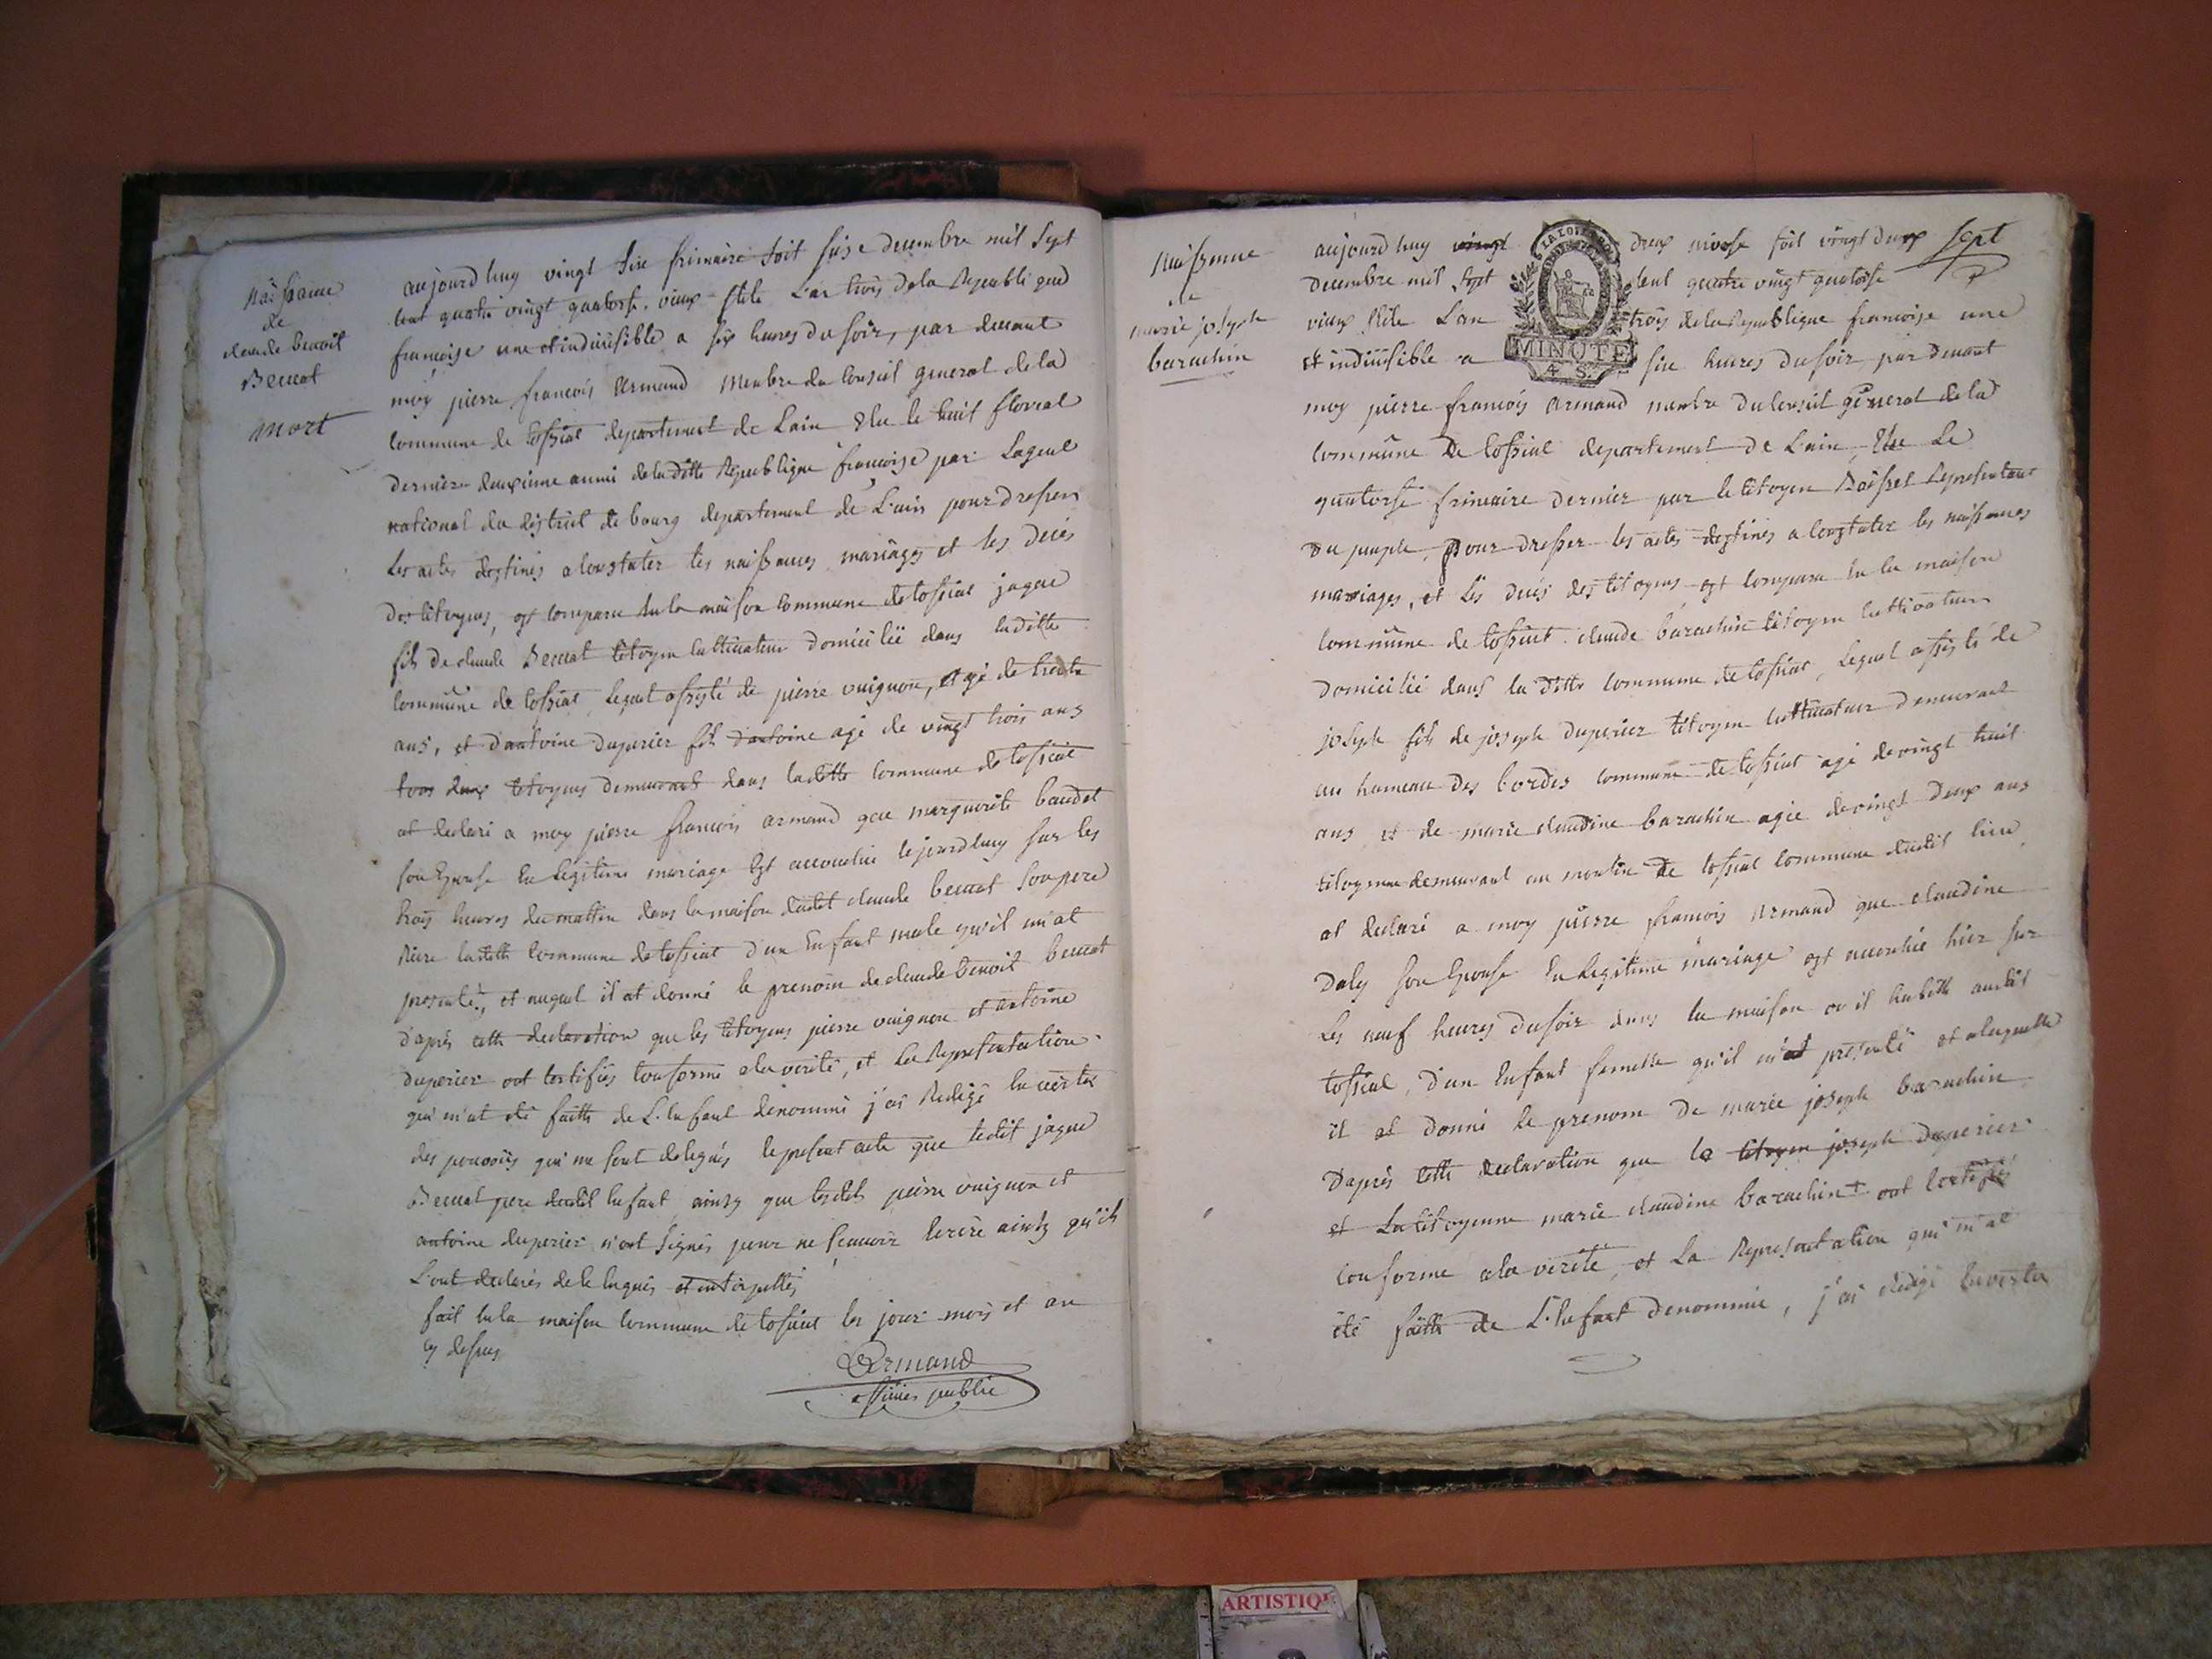 Naissance
de
claude benoit
Beccat
mort
aujourdhuy vingt sixe frimaire soit seise decembre mil sept
cent quatre vingt quatorse. vieux stile L'an trois dela Republique
francoise une et indiuisible a six heures du soir, par deuant
moy pierre francois Armand Membre du Conseil general de la
Commune de tossiat departement de Lain Elu le huit floreal
dernier deuxieme anneé de la ditte Republique francoise par Lagent
national du district de bourg departement de L'ain pour dresser
Les actes destinés a Constater les naissances mariages et les deces
des citoyens, est comparu En la maison Commune de tossiat jaque
fils de claude Beccat Citoyen Cultiuateur Domicilié dans laditte
Commune de tossiat, Lequel assisté de pierre vuignon, agé de trente
ans, et d'antoine duperier fils d'antoine agé de vingt trois ans
tous deux Citoyens demeurant dans laditte Commune de tossiat
at declaré a moy pierre francois armand que marguerite baudet
son Epouse En Legitime mariage Est accouchée cejourdhuy sur les
trois heures du matin dans la maison dudit claude beccat Son pere
Riere laditte Commune de tossiat d'un Enfant male qu'il m'at
presenté, et auquel il at donné le prenom de claude benoit beccat
d'apres cette declaration que les Citoyens pierre vuignon et antoine
duperier ont Certifiés Conforme a la verité, et La Representation
qui m'at eté faitte de L'Enfant denommé j'ai Redigé En vertu
des pouvoirs qui me sont delegués le present acte que ledit jaque
Beccat pere dudit Enfant ainsy que lesdits pierre vuignon et
antoine duperier n'ont Signés pour ne scauoir Ecrire ainsy qu'ils
L'ont declarés de ce Enquis et interpellés
fait En la maison Commune de tossiat les jour mois et an
cy dessus
Armand
officier public
Naissance
de
marie joseph
barachin
aujourdhuy vingt deux nivose soit vingt deux
sept
Decembre mil Sept Cent quatre vingt quatorse
vieux Stile L'an trois de la Republique francoise une
et indiuisible a sixe heures du soir, par deuant
moy pierre francois Armand membre du Conseil General de la
Commune de tossiat departement de L'ain, Elu Le
quatorse frimaire dernier par le Citoyen Boisset Representant
du peuple, pour dresser les actes destinés a Constater les naissances
mariages, et Les deces des Citoyens est Comparu En la maison
Commune de tossiat claude barachin Citoyen Cultivateur
Domicilié dans la ditte Commune de tossiat, Lequel assisté de
joseph fils de joseph duperier Citoyen Cultiuateur demeurant
au hameau des bordes Commune de tossiat agé de vingt huit
ans et de marie claudine barachin agée de vingt deux ans
Citoyenne demeurant au moulin de tossiat Commune dudit lieu
at declaré a moy pierre francois Armand que claudine
Daly son Epouse En Legitime mariage est accouchée hier sur
Les neuf heures du soir dans la maison ou il habitte audit
tossiat, d'un Enfant femelle qu'il m'at presenté et a laquelle
il at donné le prenom de marie joseph barachin
D'apres cette declaration que le Citoyen joseph duperier
et La Citoyenne marie claudine barachin ont Certifiés
Conforme a la verité, et La Representation qui m'at
eté faitte de L'Enfant denommée, j'ai redigé En vertu
MINUTE
4 S.
ARTISTIQ